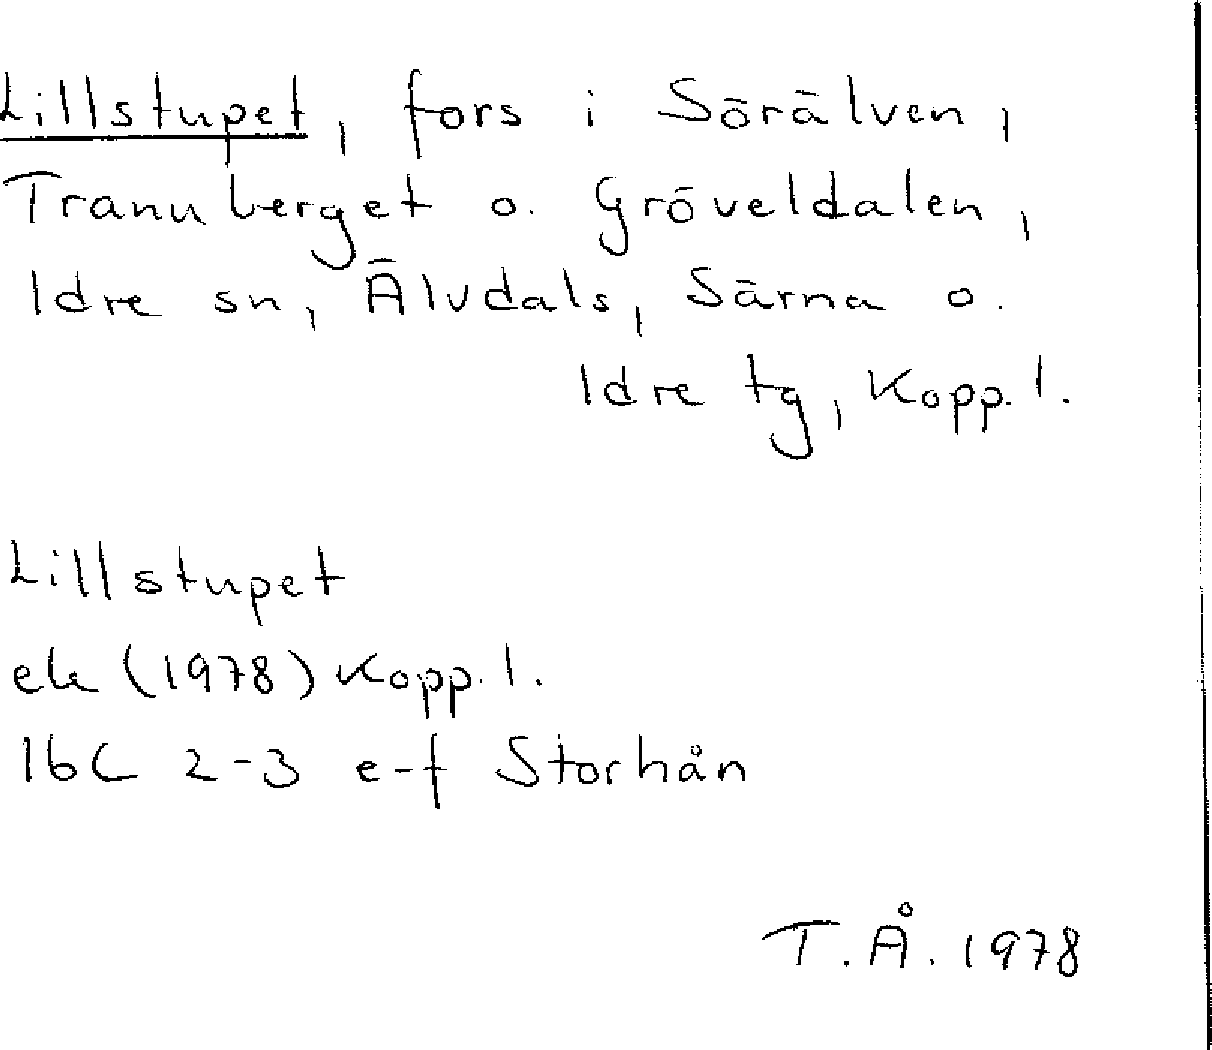 Lillstupet, fors i Sörälven,
Trannberget o. Gröveldalen,
Idre sn, Älvdals, Särna o.
Idre tg, Kopp. l.
Lillstupet
ek (1978) Kopp. l.
16C 2-3 e-f Storhån
T.Å. 1978